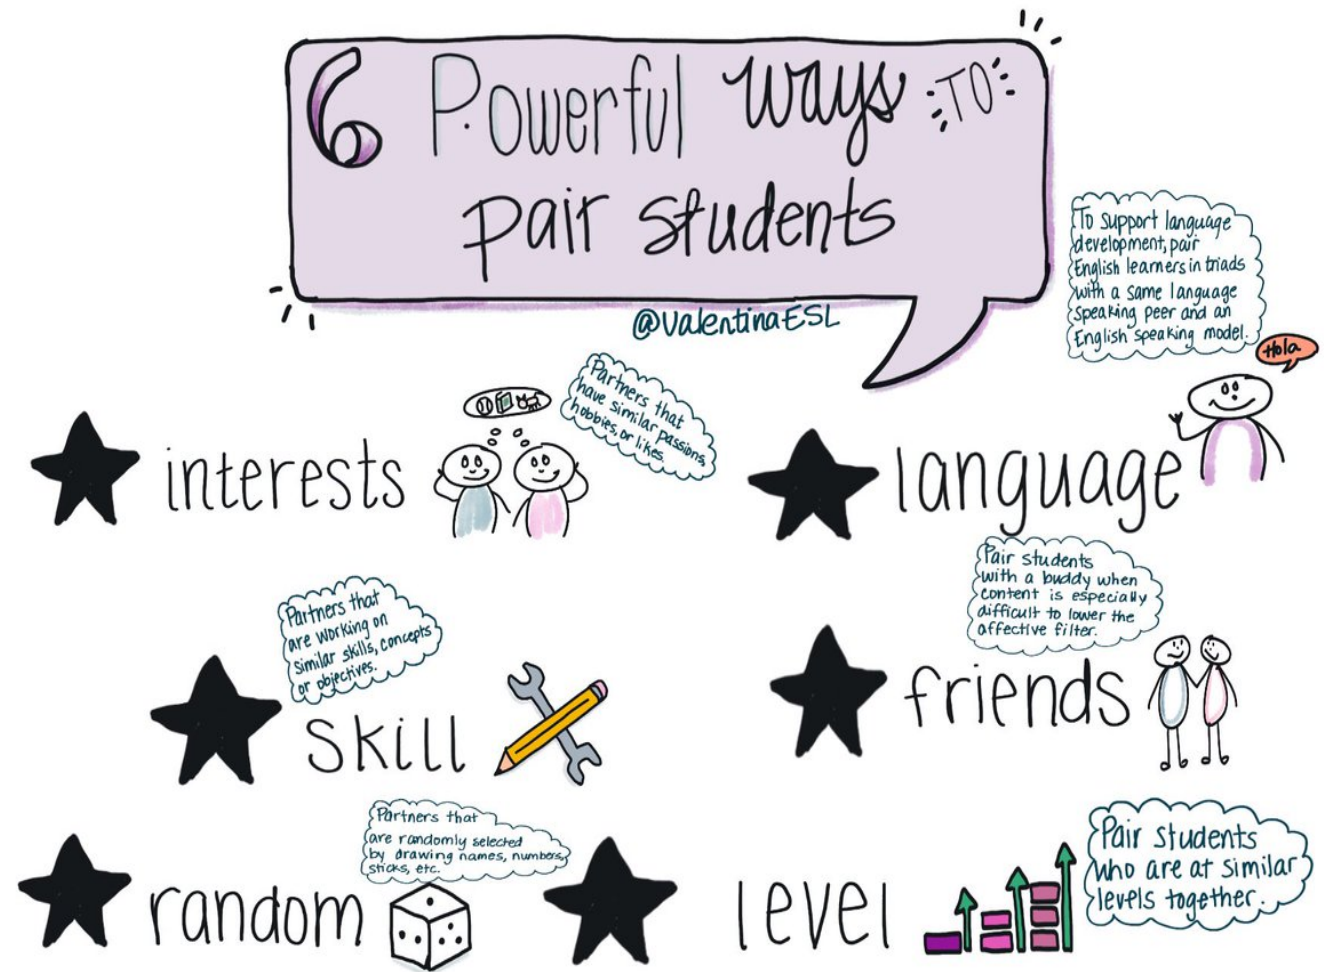 6 Powerful ways TO
pair students
@ValentinaESL
To support language
development, pair
English learners in triads
with a same language
speaking peer and an
English speaking model.
Hola
Partners that
have similar passions,
hobbies, or likes.
interests
language
Pair students
with a buddy when
content is especially
difficult to lower the
affective filter.
Partners that
are working on
similar skills, concepts
or objectives.
skill
friends
Partners that
are randomly selected
by drawing names, numbers,
sticks, etc.
random
level
Pair students
who are at similar
levels together.